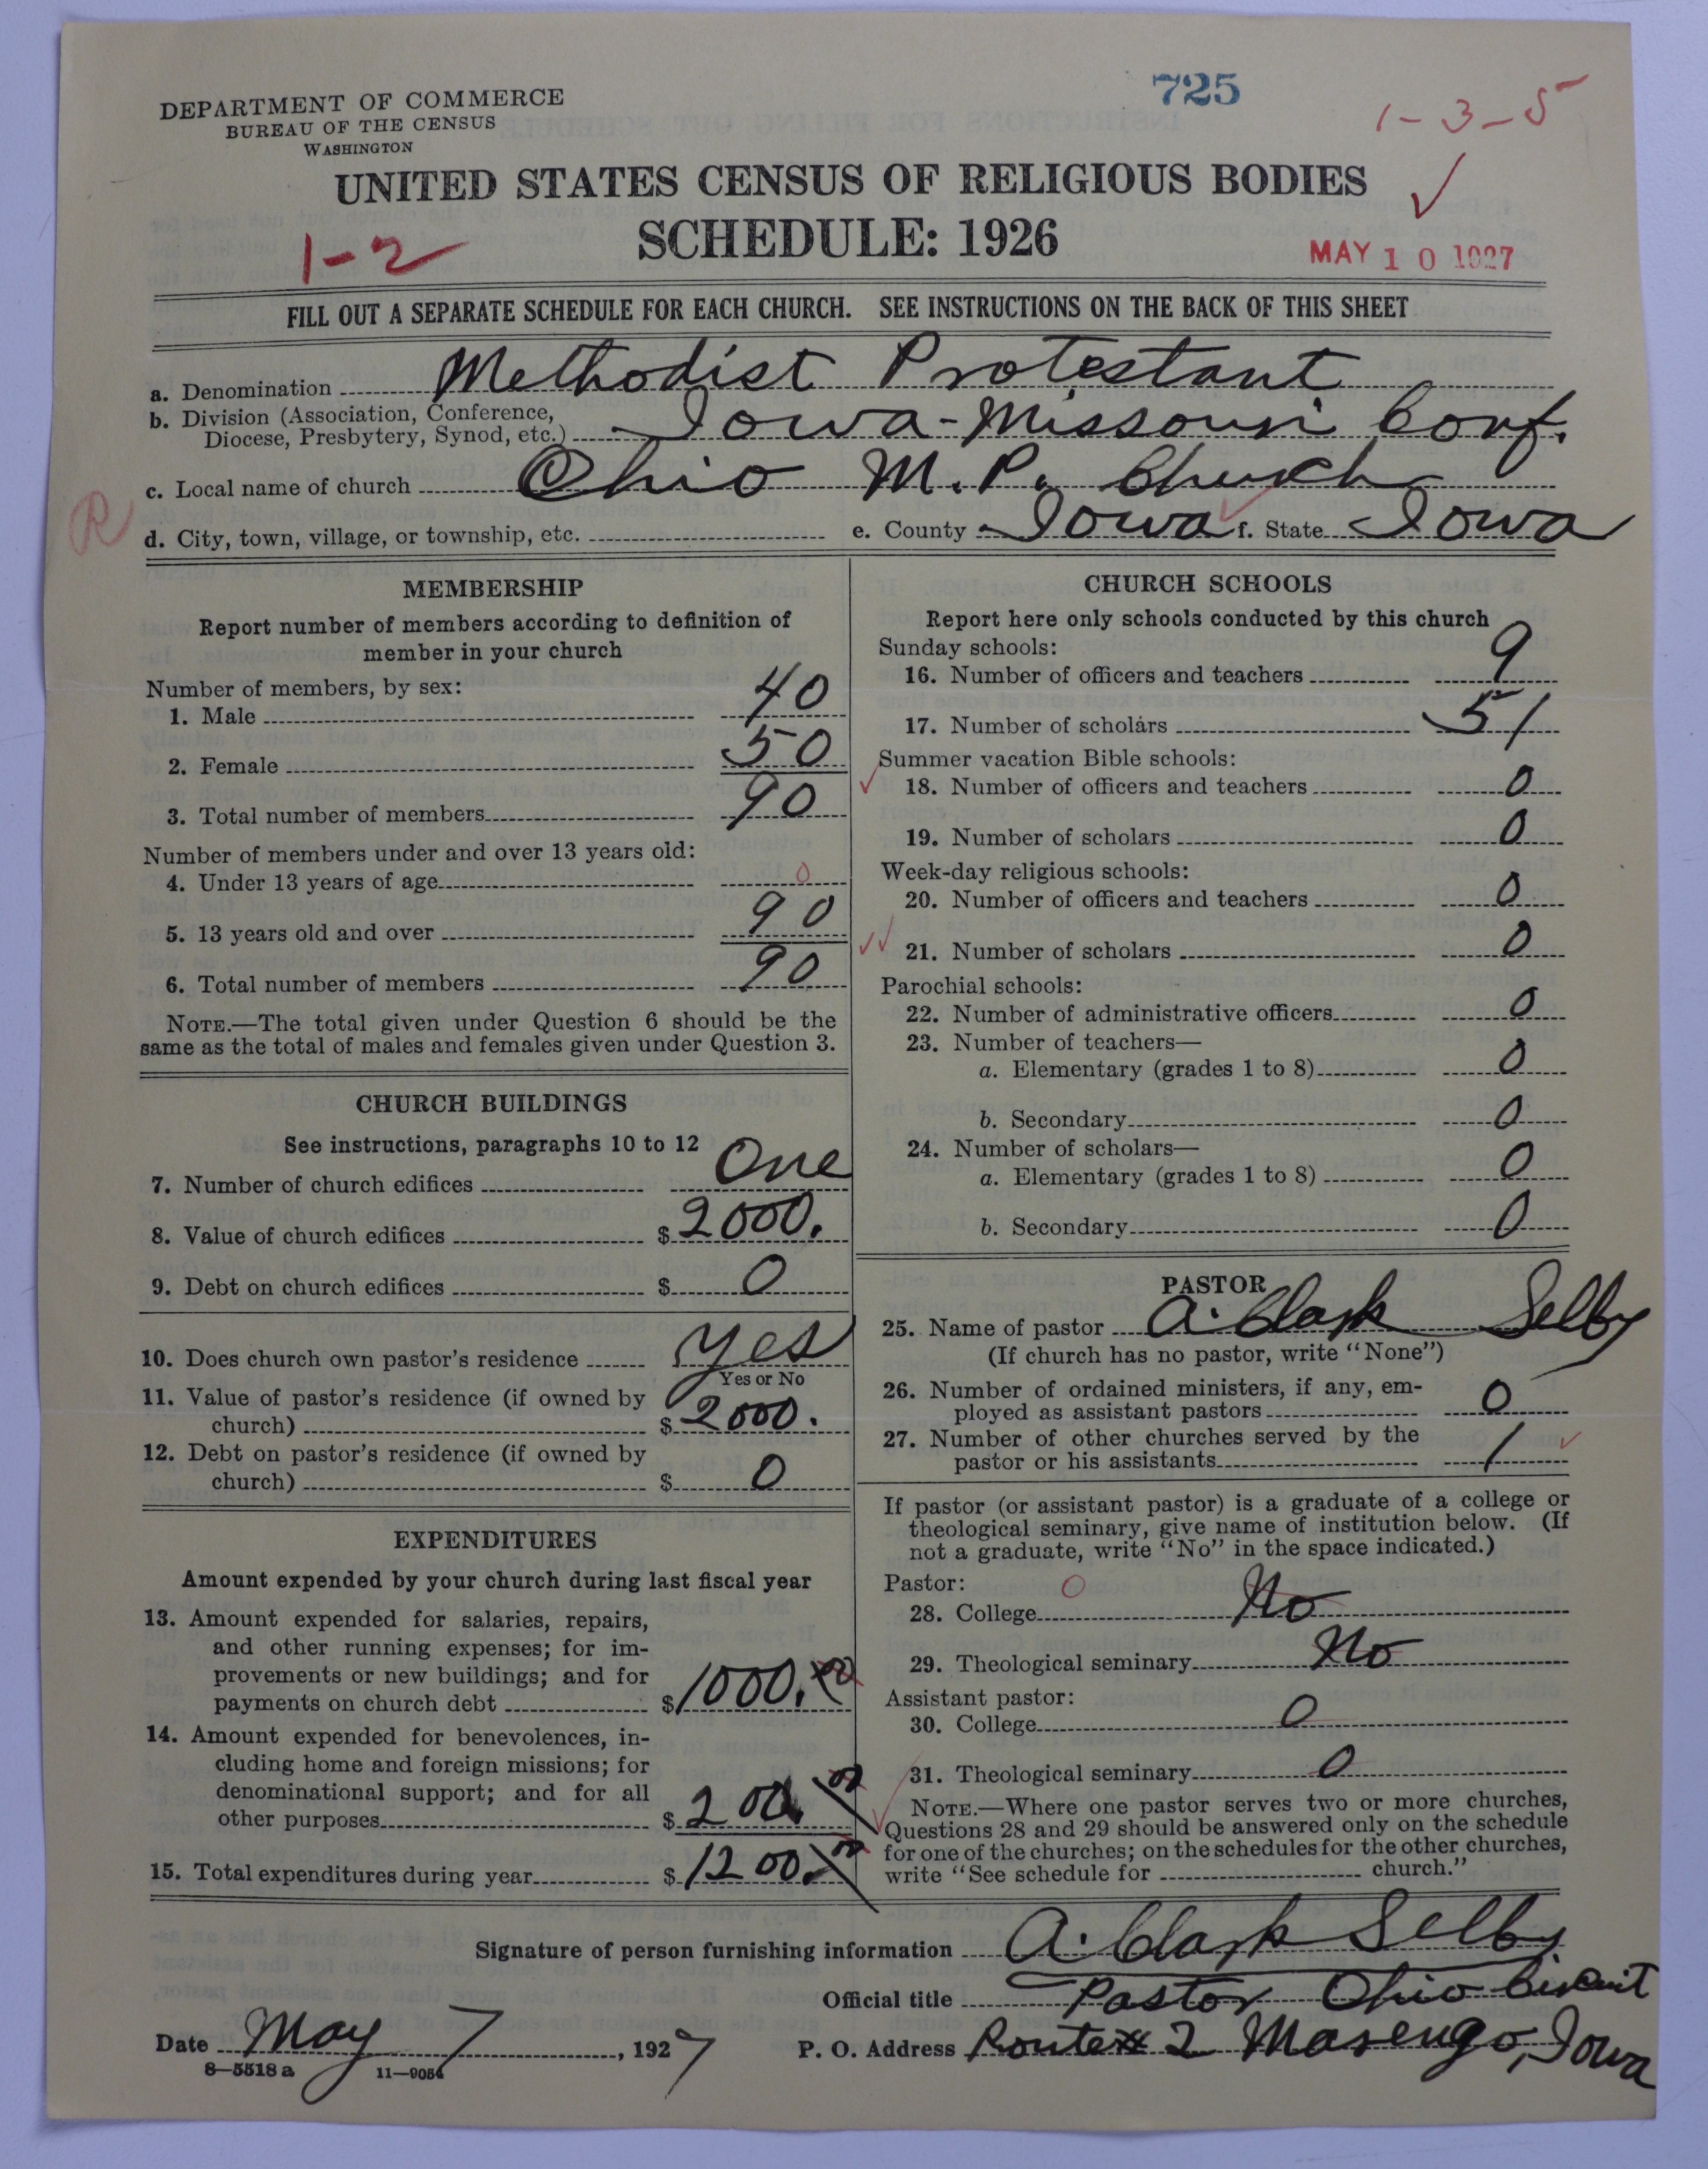 725
1-3-5
DEPARTMENT OF COMMERCE
BUREAU OF THE CENSUS
WASHINGTON
UNITED STATES CENSUS OF RELIGIOUS BODIES
SCHEDULE: 1926
1-2
MAY 10 1927
FILL OUT A SEPARATE SCHEDULE FOR EACH CHURCH. SEE INSTRUCTIONS ON THE BACK OF THIS SHEET
a. Denomination Methodist Protestant
b. Division (Association, Conference,
Diocese, Presbytery, Synod, etc.) Iowa-Missouri Conf.
c. Local name of church Ohio M.P. Church
R
d. City, town, village, or township, etc. e. County Iowa f. State Iowa
MEMBERSHIP
Report number of members according to definition of
member in your church
Number of members, by sex:
1. Male 40
2. Female 50
3. Total number of members 90
Number of members under and over 13 years old:
4. Under 13 years of age 0
5. 13 years old and over 90
6. Total number of members 90
NOTE.—The total given under Question 6 should be the
same as the total of males and females given under Question 3.
CHURCH BUILDINGS
See instructions, paragraphs 10 to 12
7. Number of church edifices One
8. Value of church edifices $ 2000.
9. Debt on church edifices $ 0
10. Does church own pastor's residence Yes
Yes or No
11. Value of pastor's residence (if owned by
church) $ 2000.
12. Debt on pastor's residence (if owned by
church) $ 0
EXPENDITURES
Amount expended by your church during last fiscal year
13. Amount expended for salaries, repairs,
and other running expenses; for im-
provements or new buildings; and for
payments on church debt $ 1000.00
14. Amount expended for benevolences, in-
cluding home and foreign missions; for
denominational support; and for all
other purposes $ 200.00
15. Total expenditures during year $ 1200.00
CHURCH SCHOOLS
Report here only schools conducted by this church
Sunday schools:
16. Number of officers and teachers 9
17. Number of scholars 51
Summer vacation Bible schools:
18. Number of officers and teachers 0
19. Number of scholars 0
Week-day religious schools:
20. Number of officers and teachers 0
21. Number of scholars 0
Parochial schools:
22. Number of administrative officers 0
23. Number of teachers—
a. Elementary (grades 1 to 8) 0
b. Secondary 0
24. Number of scholars—
a. Elementary (grades 1 to 8) 0
b. Secondary 0
PASTOR
25. Name of pastor A. Clark Selby
(If church has no pastor, write "None")
26. Number of ordained ministers, if any, em-
ployed as assistant pastors 0
27. Number of other churches served by the
pastor or his assistants 1
If pastor (or assistant pastor) is a graduate of a college or
theological seminary, give name of institution below. (If
not a graduate, write "No" in the space indicated.)
Pastor: 0
28. College No
29. Theological seminary No
Assistant pastor:
30. College 0
31. Theological seminary 0
NOTE.—Where one pastor serves two or more churches,
Questions 28 and 29 should be answered only on the schedule
for one of the churches; on the schedules for the other churches,
write "See schedule for church."
Signature of person furnishing information A. Clark Selby
Official title Pastor Ohio Circuit
Date May 7, 1927 P. O. Address Route 2 Marengo, Iowa
8—5518 a 11—9054